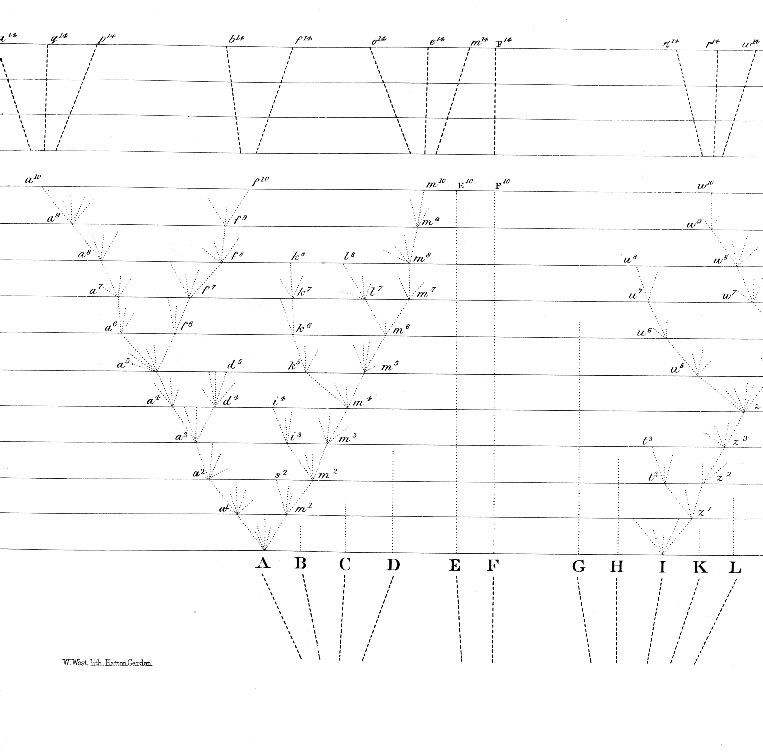 a¹⁴ q¹⁴ p¹⁴ b¹⁴ f¹⁴ o¹⁴ e¹⁴ m¹⁴ F¹⁴ n¹⁴ r¹⁴ w¹⁴
a¹⁰ f¹⁰ m¹⁰ E¹⁰ F¹⁰ w¹⁰
a⁹ f⁹ m⁹ w⁹
a⁸ f⁸ k⁸ l⁸ m⁸ u⁸ w⁸
a⁷ f⁷ k⁷ l⁷ m⁷ u⁷ w⁷
a⁶ f⁶ k⁶ m⁶ u⁶
a⁵ d⁵ k⁵ m⁵ u⁵
a⁴ d⁴ i⁴ m⁴ z
a³ i³ m³ t³ z³
a² s² m² t² z²
a¹ m¹ z¹
A B C D E F G H I K L
W. West lith. Hatton Garden.